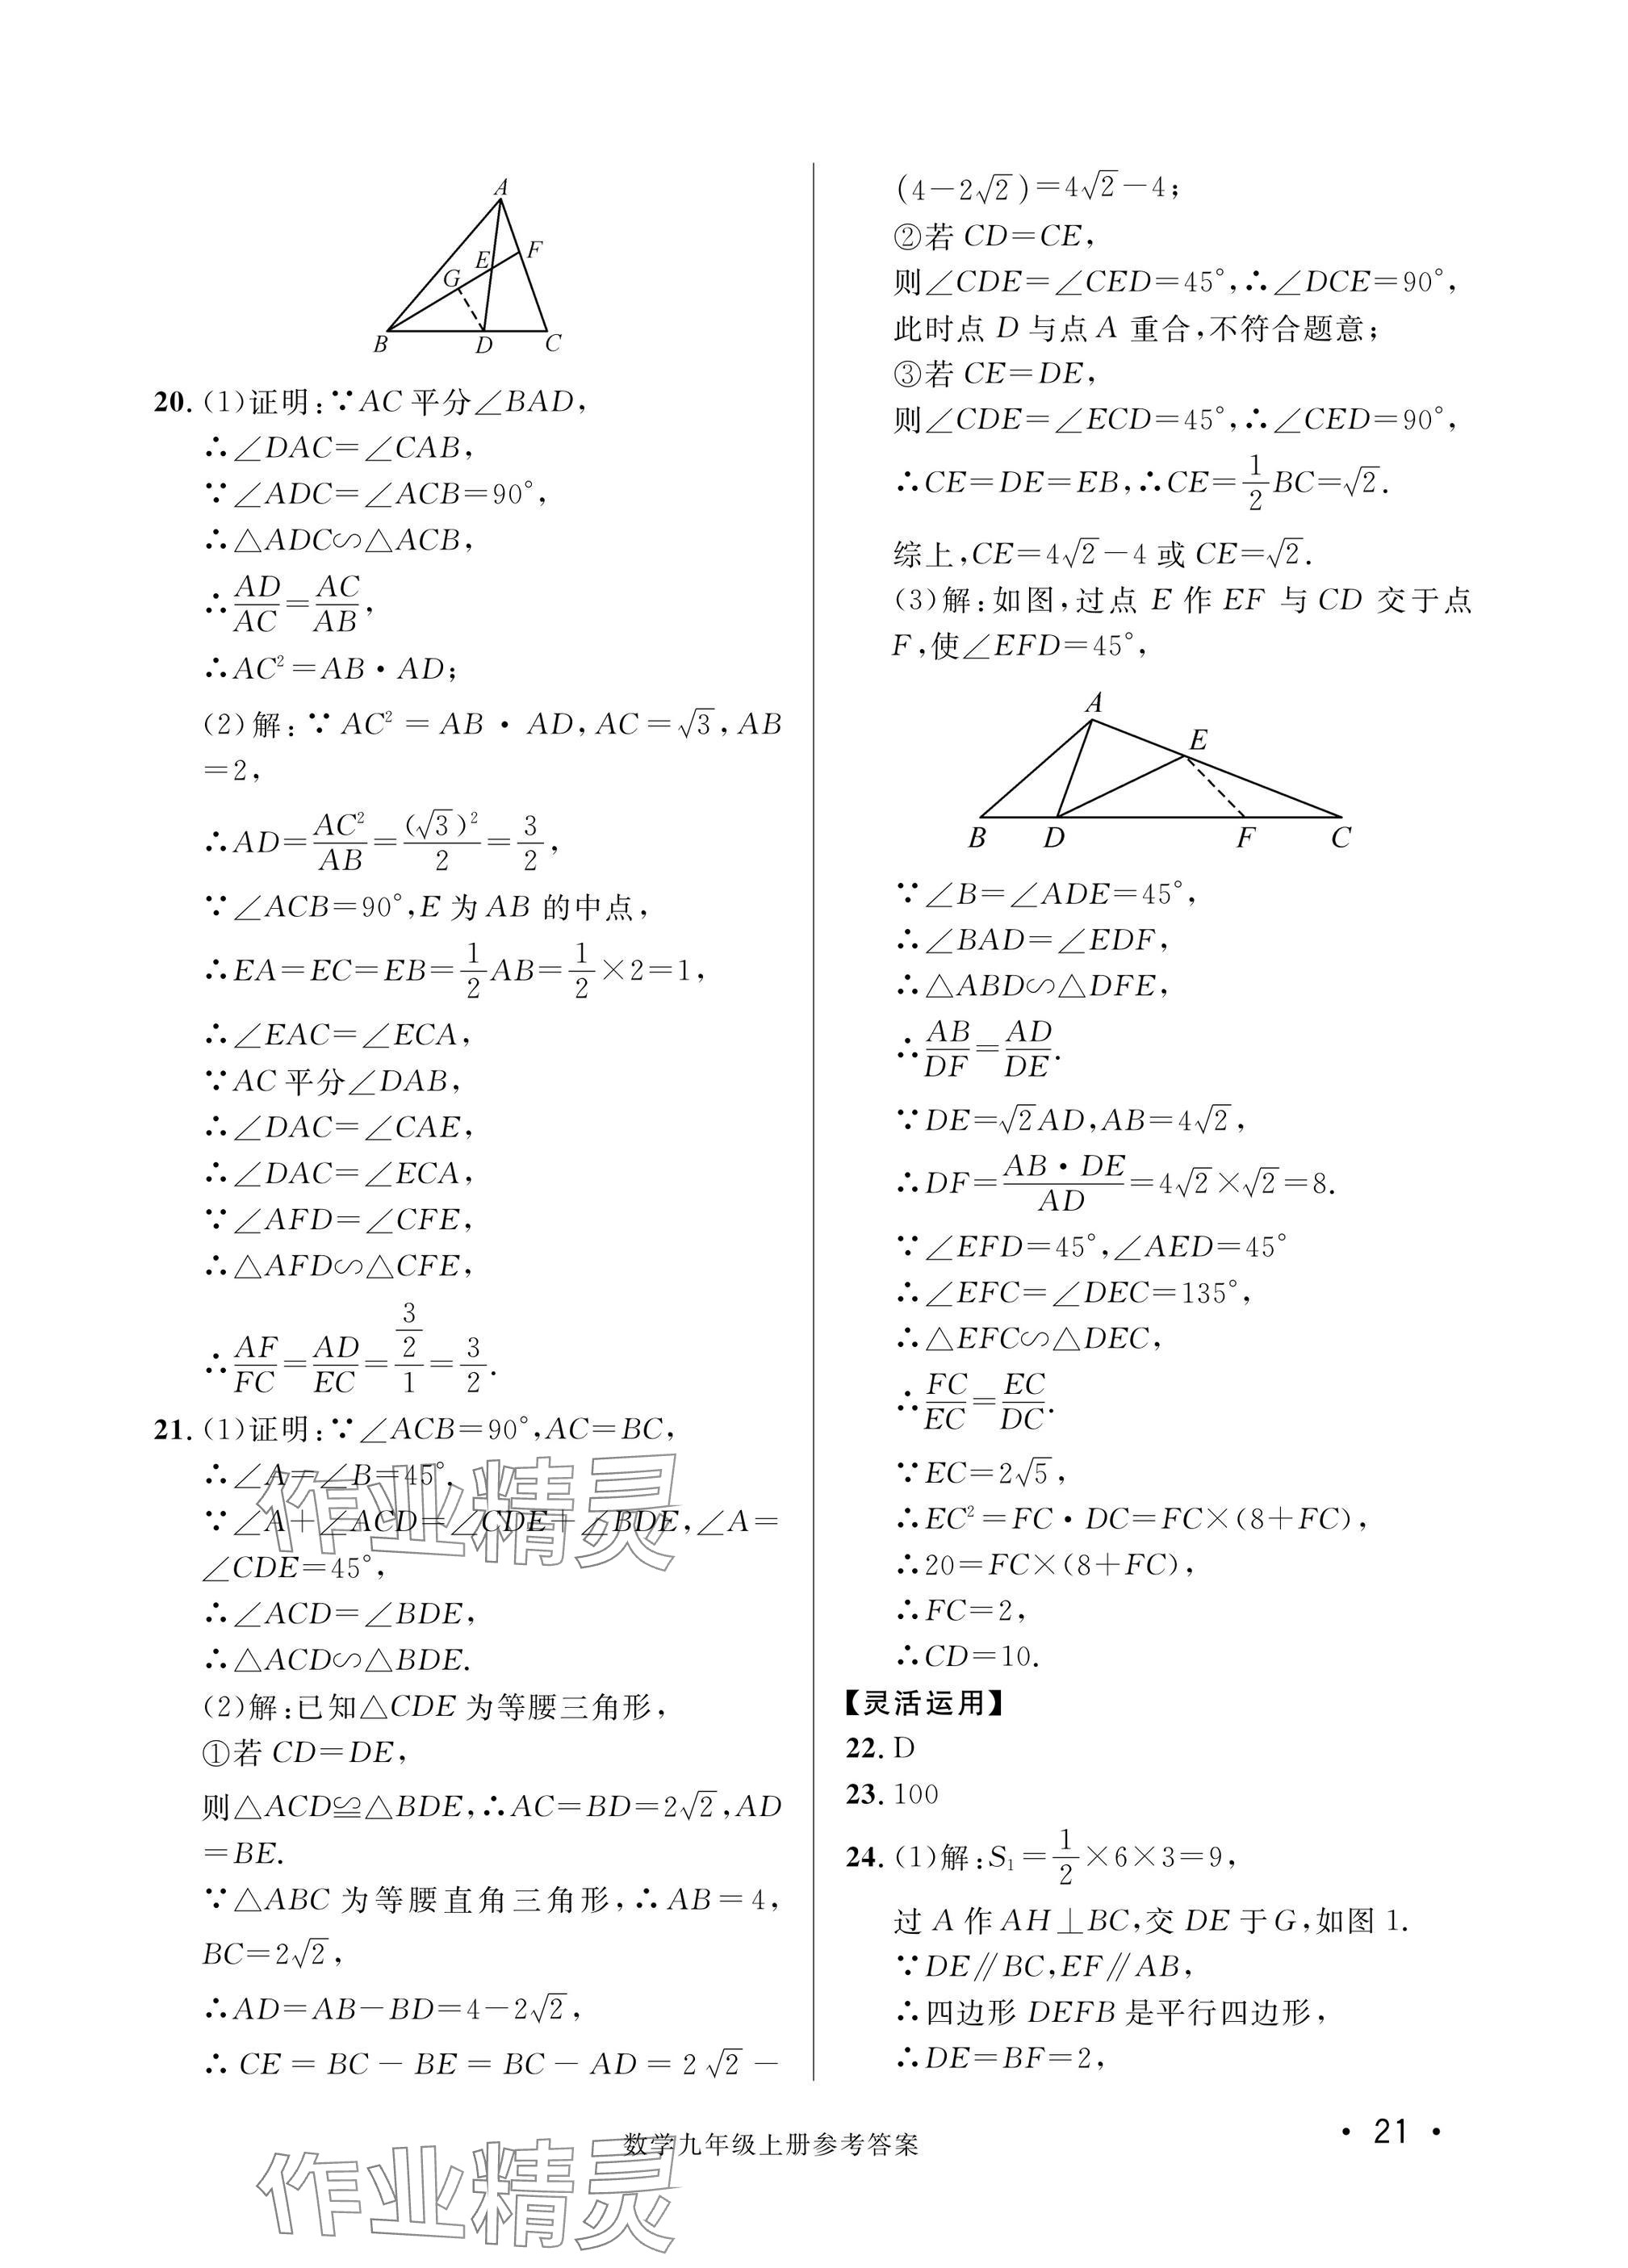 A
F
E
G
B
D
C
20. (1)证明:∵AC平分∠BAD,
∴∠DAC=∠CAB,
∵∠ADC=∠ACB=90°,
∴△ADC∽△ACB,
∴AD/AC=AC/AB,
∴AC²=AB·AD;
(2)解:∵AC²=AB·AD,AC=√3,AB
=2,
∴AD=AC²/AB=(√3)²/2=3/2,
∵∠ACB=90°,E为AB的中点,
∴EA=EC=EB=1/2AB=1/2×2=1,
∴∠EAC=∠ECA,
∵AC平分∠DAB,
∴∠DAC=∠CAE,
∴∠DAC=∠ECA,
∵∠AFD=∠CFE,
∴△AFD∽△CFE,
∴AF/FC=AD/EC=(3/2)/1=3/2.
21. (1)证明:∵∠ACB=90°,AC=BC,
∴∠A=∠B=45°,
∵∠A+∠ACD=∠CDE+∠BDE,∠A=
∠CDE=45°,
∴∠ACD=∠BDE,
∴△ACD∽△BDE.
(2)解:已知△CDE为等腰三角形,
①若CD=DE,
则△ACD≌△BDE,∴AC=BD=2√2,AD
=BE.
∵△ABC为等腰直角三角形,∴AB=4,
BC=2√2,
∴AD=AB-BD=4-2√2,
∴CE=BC-BE=BC-AD=2√2-
(4-2√2)=4√2-4;
②若CD=CE,
则∠CDE=∠CED=45°,∴∠DCE=90°,
此时点D与点A重合,不符合题意;
③若CE=DE,
则∠CDE=∠ECD=45°,∴∠CED=90°,
∴CE=DE=EB,∴CE=1/2BC=√2.
综上,CE=4√2-4或CE=√2.
(3)解:如图,过点E作EF与CD交于点
F,使∠EFD=45°,
A
E
B
D
F
C
∵∠B=∠ADE=45°,
∴∠BAD=∠EDF,
∴△ABD∽△DFE,
∴AB/DF=AD/DE.
∵DE=√2AD,AB=4√2,
∴DF=AB·DE/AD=4√2×√2=8.
∵∠EFD=45°,∠AED=45°
∴∠EFC=∠DEC=135°,
∴△EFC∽△DEC,
∴FC/EC=EC/DC.
∵EC=2√5,
∴EC²=FC·DC=FC×(8+FC),
∴20=FC×(8+FC),
∴FC=2,
∴CD=10.
【灵活运用】
22. D
23. 100
24. (1)解:S₁=1/2×6×3=9,
过A作AH⊥BC,交DE于G,如图1.
∵DE∥BC,EF∥AB,
∴四边形DEFB是平行四边形,
∴DE=BF=2,
作业精灵
数学九年级上册参考答案
·21·
作业精灵